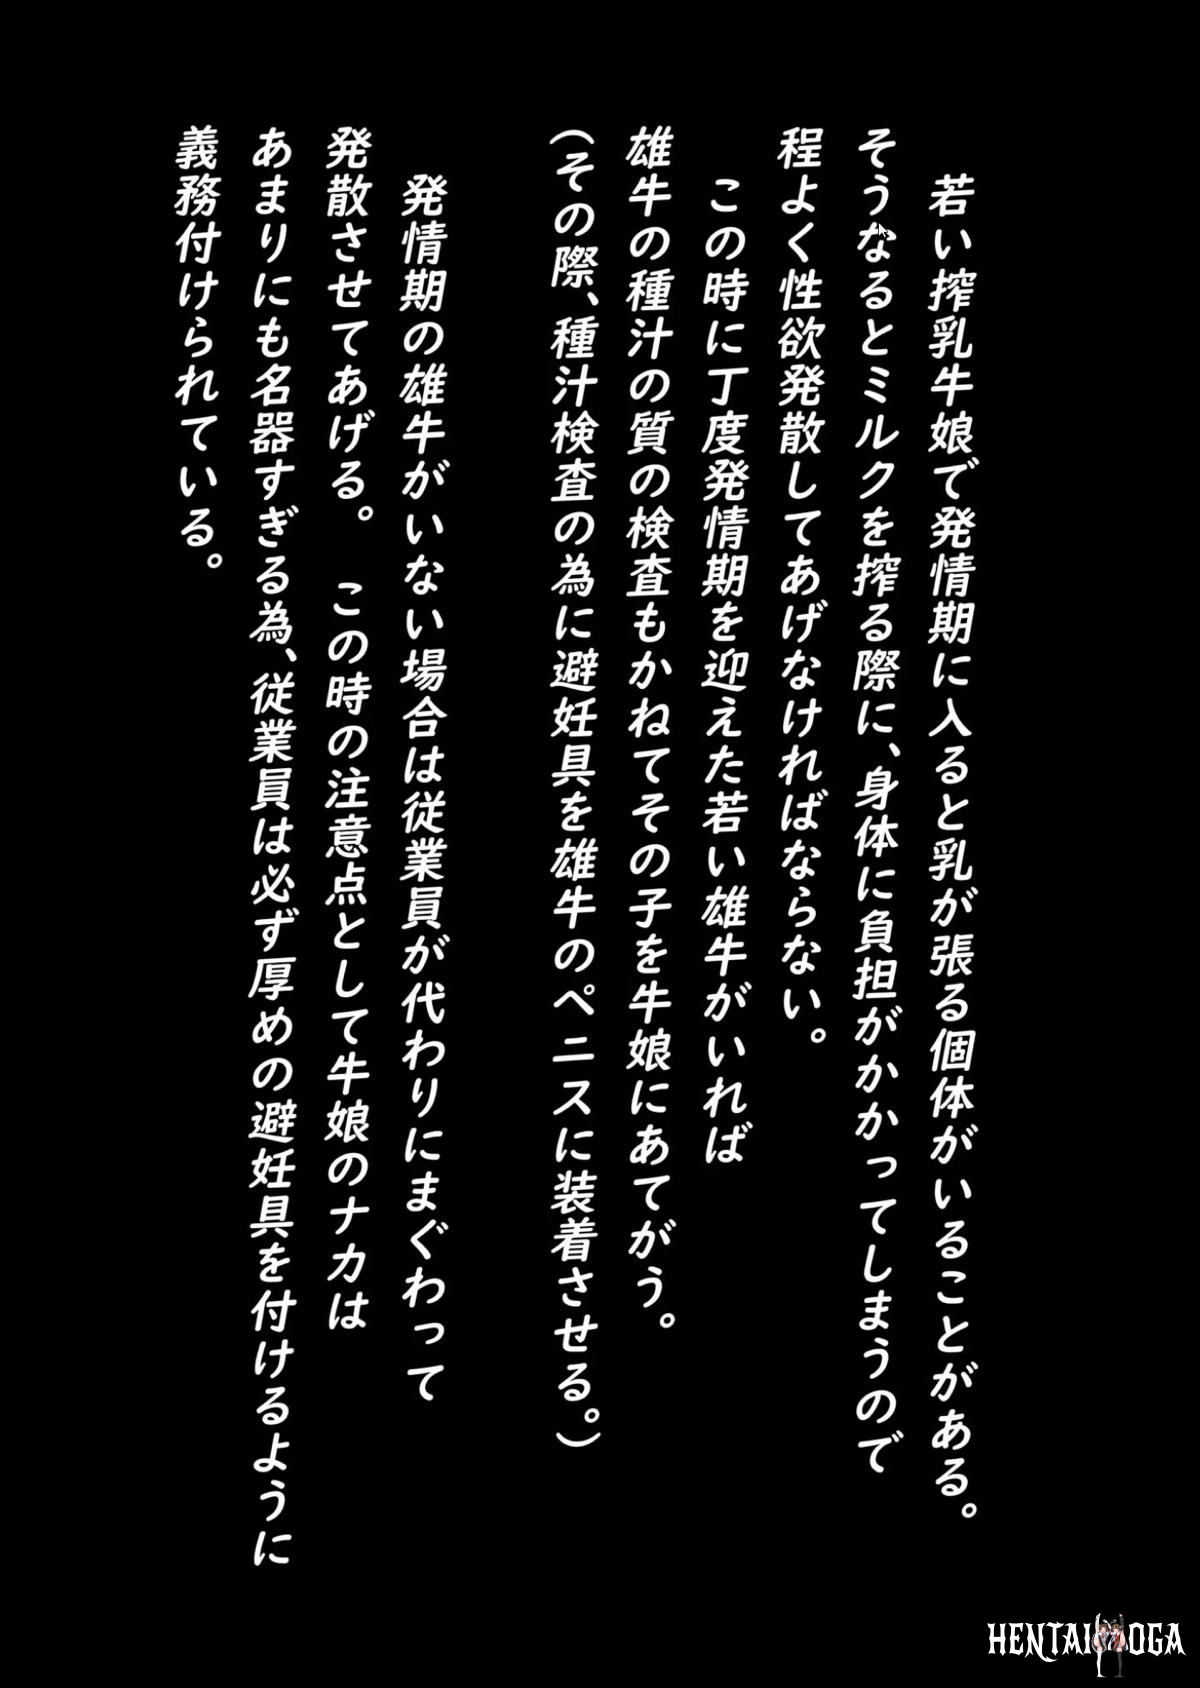 若い搾乳牛娘で発情期に入ると乳が張る個体がいることがある。
そうなるとミルクを搾る際に、身体に負担がかかってしまうので
程よく性欲発散してあげなければならない。
この時に丁度発情期を迎えた若い雄牛がいれば
雄牛の種汁の質の検査もかねてその子を牛娘にあてがう。
（その際、種汁検査の為に避妊具を雄牛のペニスに装着させる。）
発情期の雄牛がいない場合は従業員が代わりにまぐわって
発散させてあげる。　この時の注意点として牛娘のナカは
あまりにも名器すぎる為、従業員は必ず厚めの避妊具を付けるように
義務付けられている。
HENTAI OGA